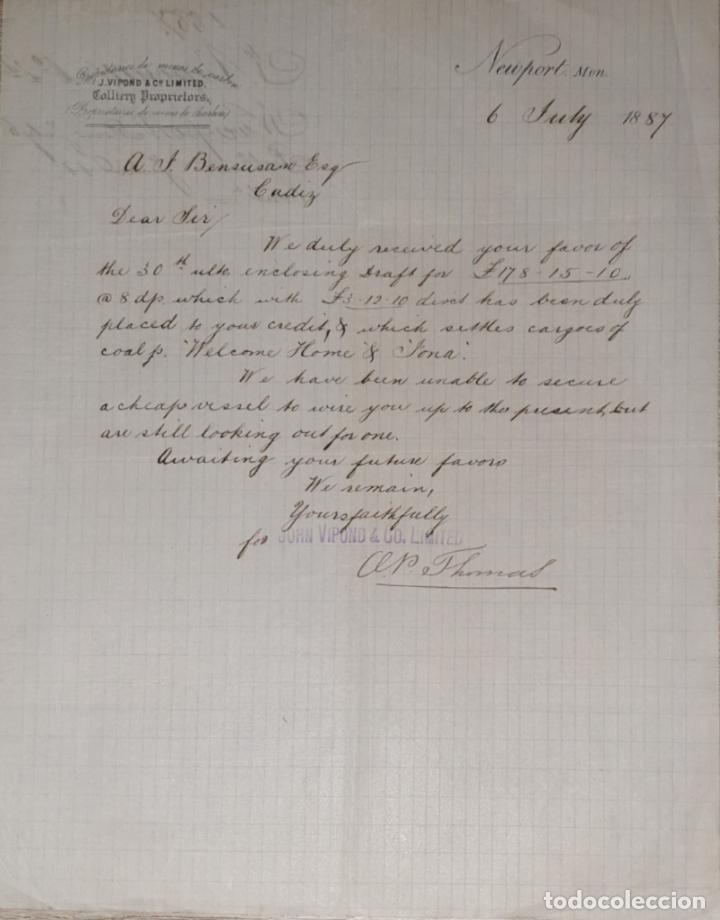 Proprietarios de minas de carbon
J. VIPOND & Co LIMITED,
Colliery Proprietors,
(Proprietaires de mines de charbon)
Newport. Mon.
6 July 1887
A. J. Bensusan Esq
Cadiz
Dear Sir/
We duly received your favor of
the 30th ulto. enclosing Draft for £178-15-10.
@ 8 dp. which with £3-12-10 disct has been duly
placed to your credit, & which settles cargoes of
coal p. "Welcome Home" & "Iona".
We have been unable to secure
a cheap vessel to wire you up to the present, but
are still looking out for one.
Awaiting your future favors
We remain,
Yours faithfully
for JOHN VIPOND & CO. LIMITED
Thomas
todocoleccion.net